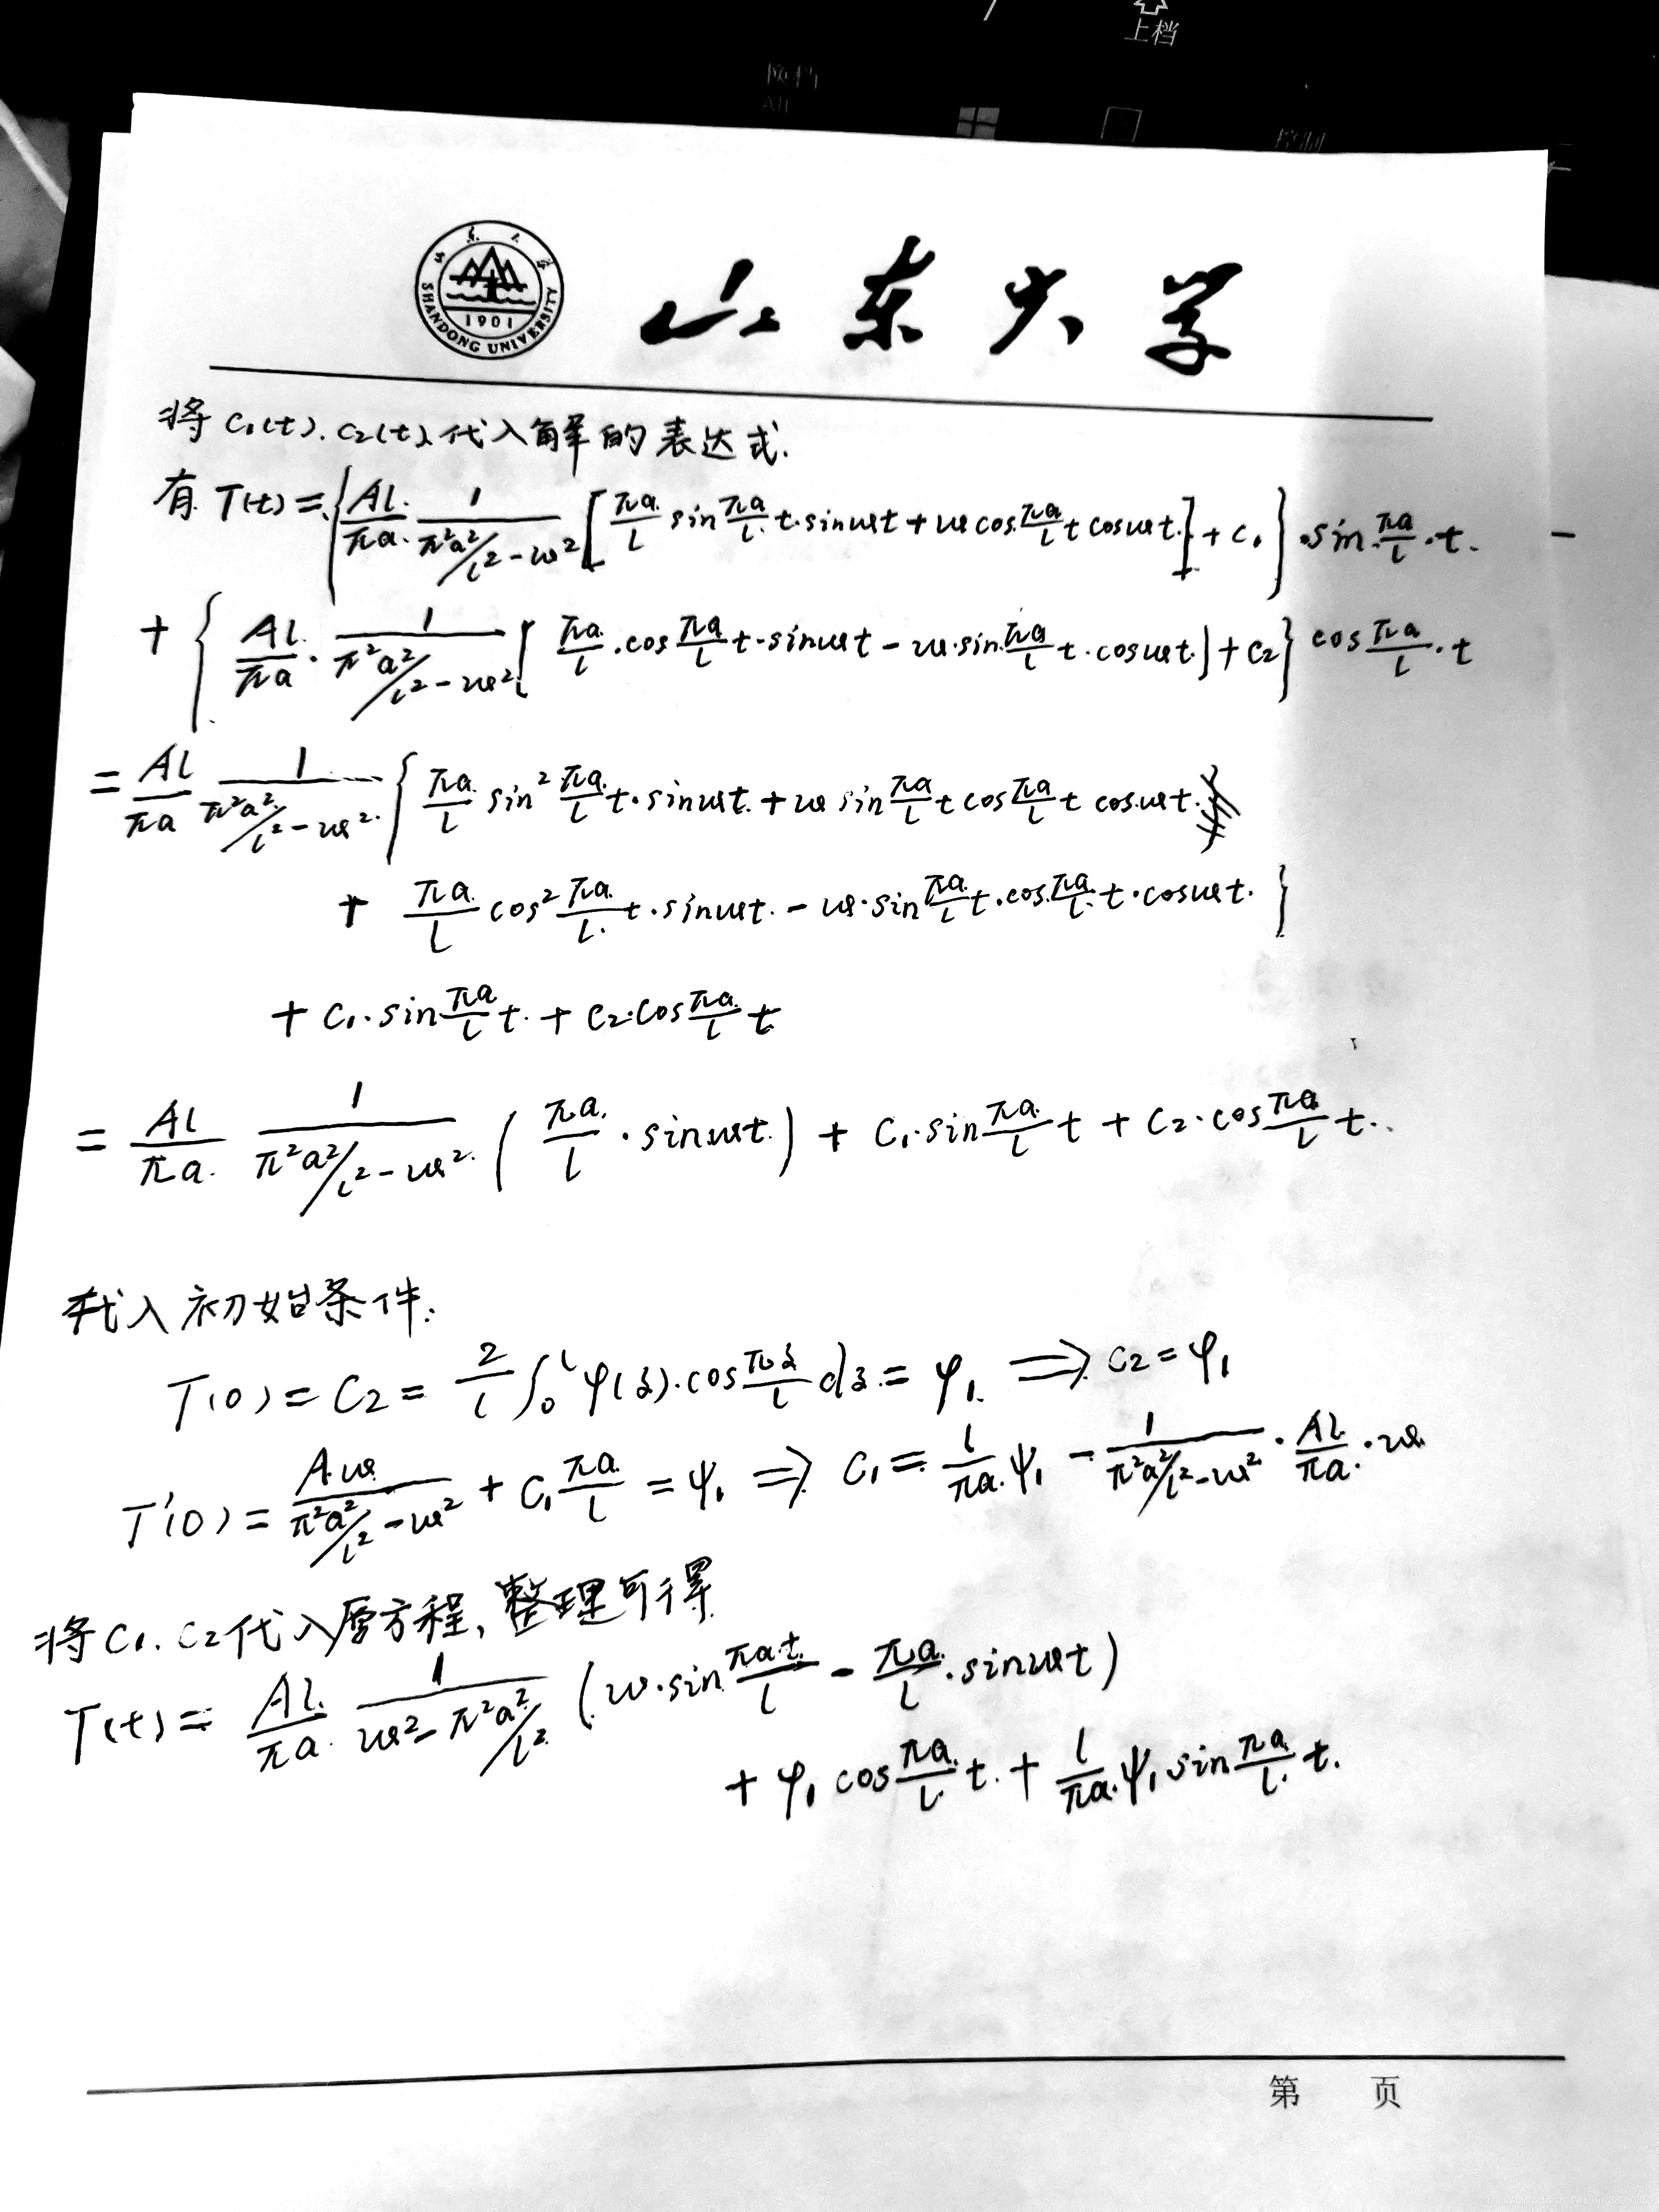 上档
Alt
山东大学
SHANDONG UNIVERSITY
1901
山东大学
将 C₁(t). C₂(t) 代入解的表达式.
有 T(t) = { Al/πa · 1/(π²a²/l² - ω²) [ πa/l sin πa/l t · sinωt + ω cos πa/l t cosωt ] + C₁ } · sin πa/l · t.
+ { Al/πa · 1/(π²a²/l² - ω²) [ πa/l · cos πa/l t · sinωt - ω · sin πa/l t · cosωt ] + C₂ } cos πa/l · t
= Al/πa 1/(π²a²/l² - ω²) { πa/l sin² πa/l t · sinωt + ω sin πa/l t cos πa/l t cosωt
+ πa/l cos² πa/l t · sinωt - ω · sin πa/l t · cos πa/l t · cosωt }
+ C₁ · sin πa/l t + C₂ · cos πa/l t
= Al/πa 1/(π²a²/l² - ω²) ( πa/l · sinωt ) + C₁ · sin πa/l t + C₂ · cos πa/l t.
代入初始条件:
T(0) = C₂ = 2/l ∫₀ˡ φ(ξ) · cos πξ/l dξ = φ₁ ⟹ C₂ = φ₁
T'(0) = Aω/(π²a²/l² - ω²) + C₁ πa/l = ψ₁ ⟹ C₁ = l/πa ψ₁ - 1/(π²a²/l² - ω²) · Al/πa · ω
将 C₁. C₂ 代入原方程, 整理可得
T(t) = Al/πa 1/(ω² - π²a²/l²) ( ω · sin πat/l - πa/l · sinωt )
+ φ₁ cos πa/l t + l/πa ψ₁ sin πa/l t.
第 页